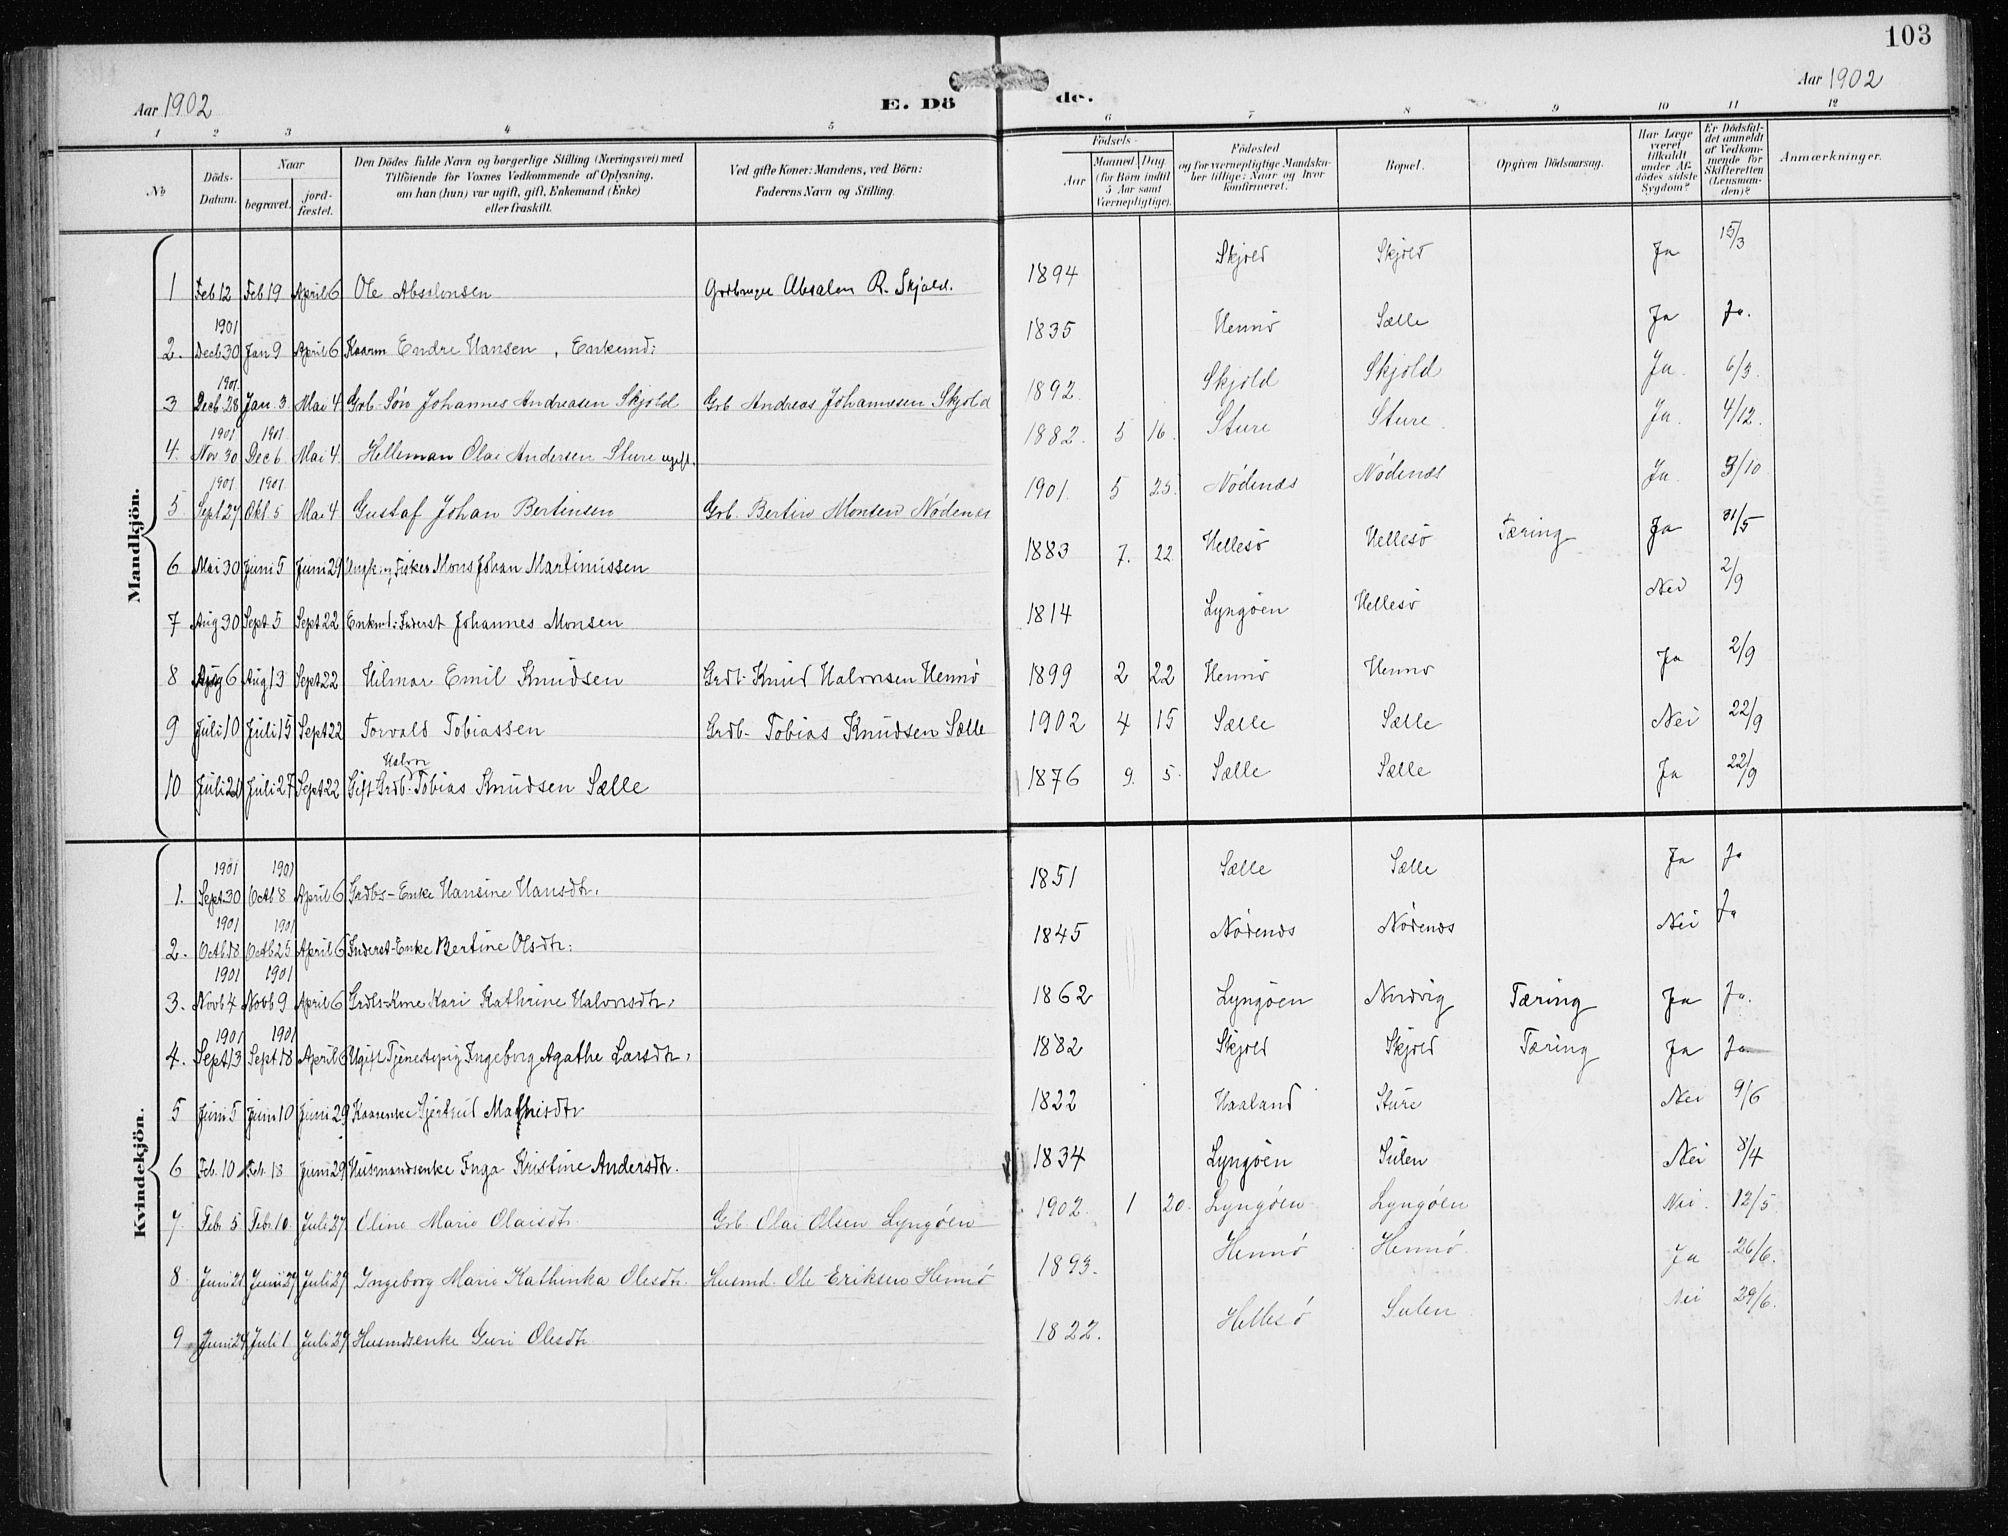 103
Aar 1902
E. Dö
de.
Aar 1902
1 2 3 4 5 6 7 8 9 10 11 12
No
Döds-Datum.
Naar
begravet.
jord-fæstet.
Den Dödes fulde Navn og borgerlige Stilling (Næringsvei) med
Tilföiende for Voxnes Vedkommende af Oplysning,
om han (hun) var ugift, gift, Enkemand (Enke)
eller fraskilt.
Ved gifte Koner: Mandens, ved Börn:
Faderens Navn og Stilling.
Födsels-
Aar
Maaned Dag
(for Börn indtil
5 Aar samt
Værnepligtige).
Födested
og for værnepligtige Mandska-
ber tillige: Naar og hvor
konfirmeret.
Bopæl.
Opgiven Dödsaarsag.
Har Læge
været
tilkaldt
under Af-
dödes sidste
Sygdom?
Er Dödsfal-
det anmeldt
af Vedkom-
mende for
Skifteretten
(Lensman-
den)?
Anmærkninger.
Mandkjön.
1 Feb 12 Feb 19 April 6 Ole Absalonsen Grdbruger Absalon R. Skjold. 1894 Skjold Skjold Ja 15/3
1901
2. Decb 30 Jan 9 April 6 Kaarm Endre Hansen, Enkemd: 1835 Hennø Sælle Ja Ja.
1901.
3 Decb. 28 Jan. 3 Mai 4 Grb. Søn Johannes Andreasen Skjold Grb Andreas Johannesen Skjold 1892. Skjold Skjold Ja. 6/3.
1901. 1901.
4. Nov. 30 Dec 6. Mai 4. Helleman Olai Andersen Sture ugift. 1882. 5 16. Sture Sture. Ja. 4/12.
1901. 1901.
5. Sept 27 Okt. 5 Mai 4 Gustaf Johan Bertinsen Grb. Bertin Monsen Nødenes 1901. 5 25. Nødenæs Nødenæs Ja. 3/10
6 Mai 30 Juni 5 Juni 29 Ungk. og Fisker Mons Johan Martinussen 1883 7. 22 Hellesø Hellesø Tæring Ja 31/5
7 Aug 30 Sept 5 Sept 22 Enkmd: Inderst Johannes Monsen 1814 Lyngøen Hellesø Nei 2/9
8 Aug 6 Aug 13 Sept 22 Hilmar Emil Knudsen Grdb. Knud Halvorsen Hennø 1899 2 22 Hennø Hennø Ja 2/9
9 Juli 10 Juli 15 Sept 22 Torvald Tobiassen Grdb. Tobias Knudsen Sælle 1902 4 15 Sælle Sælle Nei 22/9
Halvor
10 Juli 20 Juli 27 Sept 22 Gift Grdb. Tobias Knudsen Sælle 1876 9. 5. Sælle Sælle Ja 22/9
Kvindekjön.
1901 1901
1. Sept. 30 Octb 8 April 6 Grdbs-Enke Hansine Hansdtr. 1851 Sælle Sælle Ja Ja
1901 1901
2. Octb. 18 Octb 25 April 6 Inderst-Enke Bertine Olsdtr: 1845 Nødenæs Nødenæs Nei Ja
1901 1901
3. Novb 4 Novb 9 April 6 Grdbs-Kone Kari Kathrine Halvorsdtr. 1862 Lyngøen Nordvig Tæring Ja Ja.
1901 1901
4. Sept 13 Sept. 18 April 6 Ugift Tjenestepig Ingeborg Agathe Larsdtr. 1882 Skjold Skjold Tæring Ja Ja.
5 Juni 5 Juni 10 Juni 29 Kaarenke Gjertrud Mathisdtr 1822 Haaland Sture Nei 9/6
6 Feb. 10 Feb. 18 Juni 29 Husmandsenke Inga Kristine Andersdtr. 1834 Lyngøen Sulen Nei 8/4
7. Feb. 5 Feb. 10. Juli 27. Oline Marie Olaisdtr. Grb. Olai Olsen Lyngøen 1902. 1 20. Lyngøen Lyngøen Nei. 12/5.
8 Juni 21 Juni 27 Juli 27 Ingeborg Marie Kathinka Olesdtr. Husmd. Ole Eriksen Hennø 1893. Hennø Hennø. Ja 26/6.
9 Juni 24 Juli 1 Juli 27 Husmdsenke Guri Olesdtr 1822. Hellesø Sulen Nei 29/6.